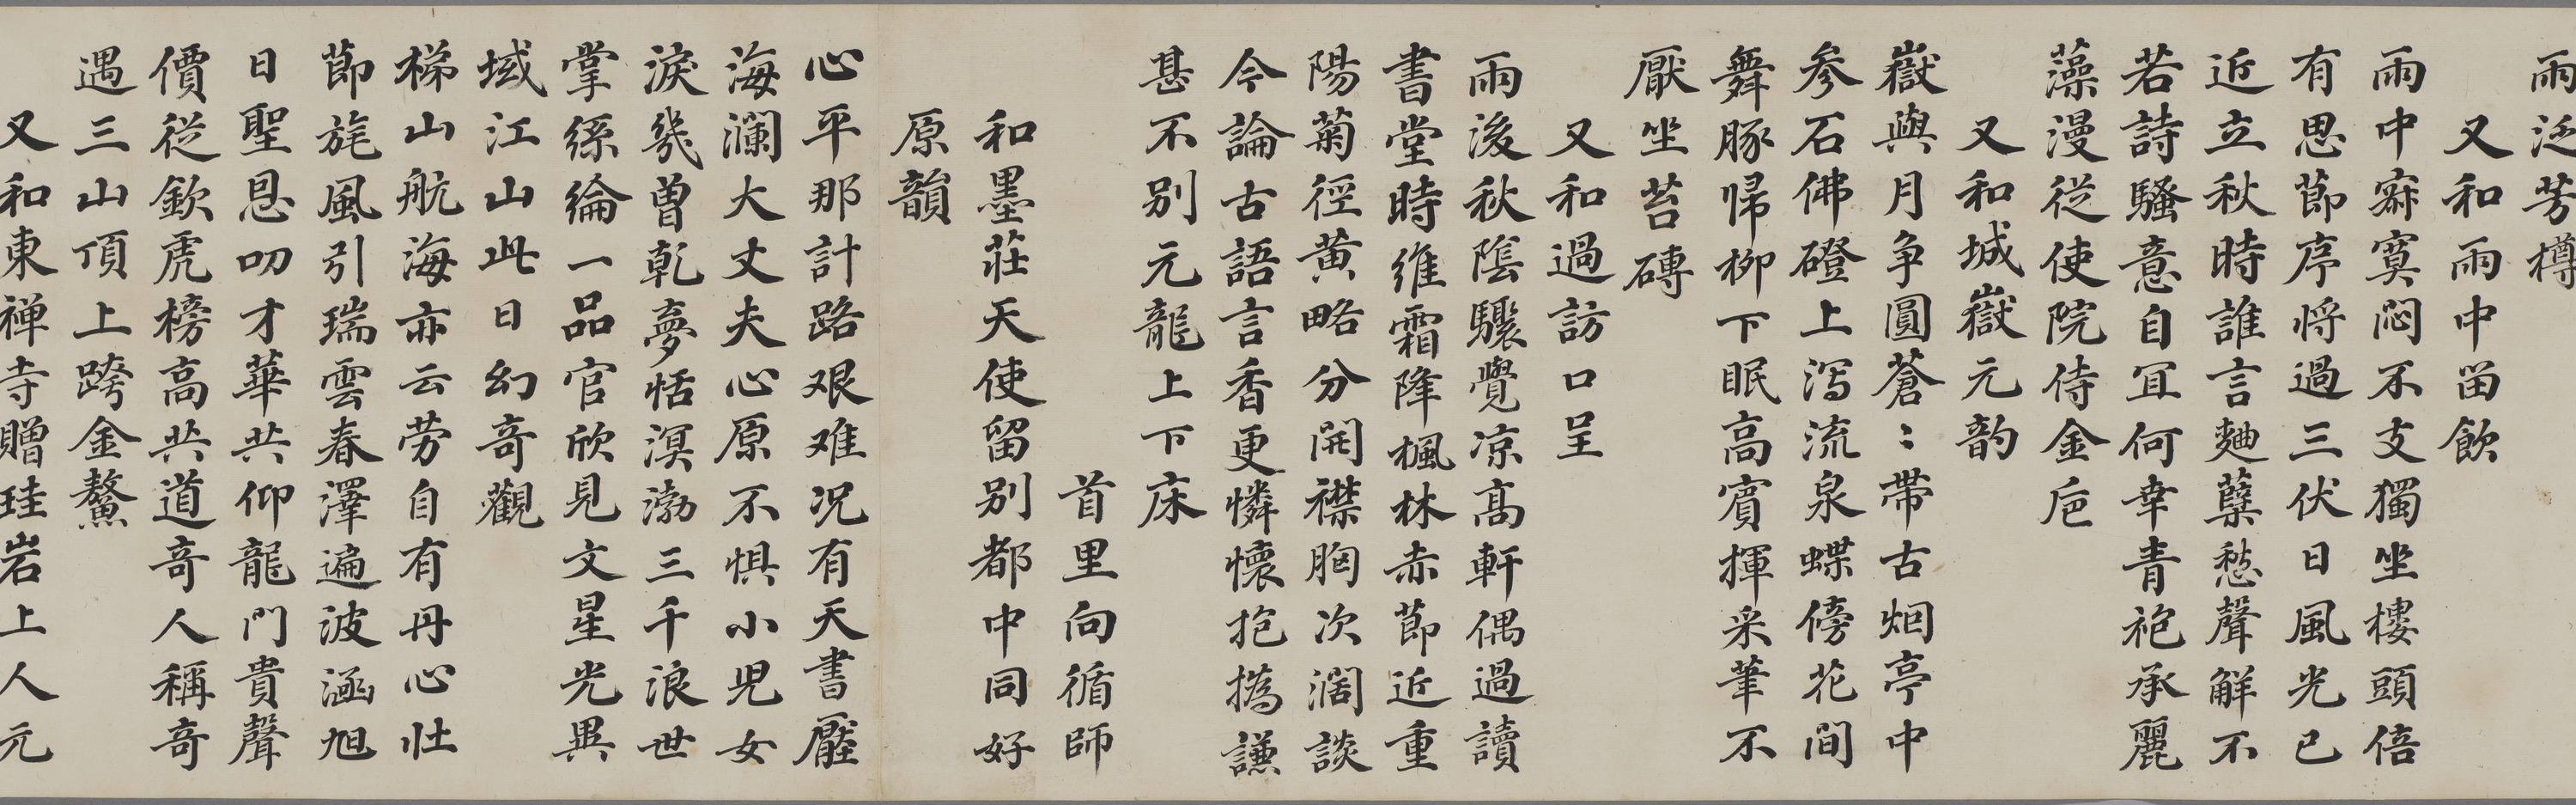 雨泛芳樽
又和雨中留飲
雨中寂寞悶不支獨坐樓頭倍
有思節序将過三伏日風光已
近立秋時誰言麯蘖愁聲解不
若詩騷意自冝何幸青袍承麗
藻漫從使院侍金巵
又和城嶽元韵
嶽與月争圓蒼〻帶古烟亭中
参石佛磴上瀉流泉蝶傍花間
舞豚帰柳下眠高賓揮采筆不
厭坐苔磚
又和過訪口呈
雨後秋隂驟覺凉高軒偶過讀
書堂時維霜降楓林赤節近重
陽菊徑黄略分開襟胸次濶談
今論古語言香更憐懷抱撝謙
甚不别元龍上下床
首里向循師
和墨莊天使留别都中同好
原韻
心平那計路艰难况有天書壓
海瀾大丈夫心原不惧小児女
淚幾曽乾夢恬溟渤三千浪世
掌絲綸一品官欣見文星光異
域江山此日幻奇觀
梯山航海亦云劳自有丹心壮
節旄風引瑞雲春澤遍波涵旭
日聖恩叨才華共仰龍門貴聲
價從欽虎榜高共道奇人稱奇
遇三山頂上跨金鰲
又和東禅寺贈珪岩上人元